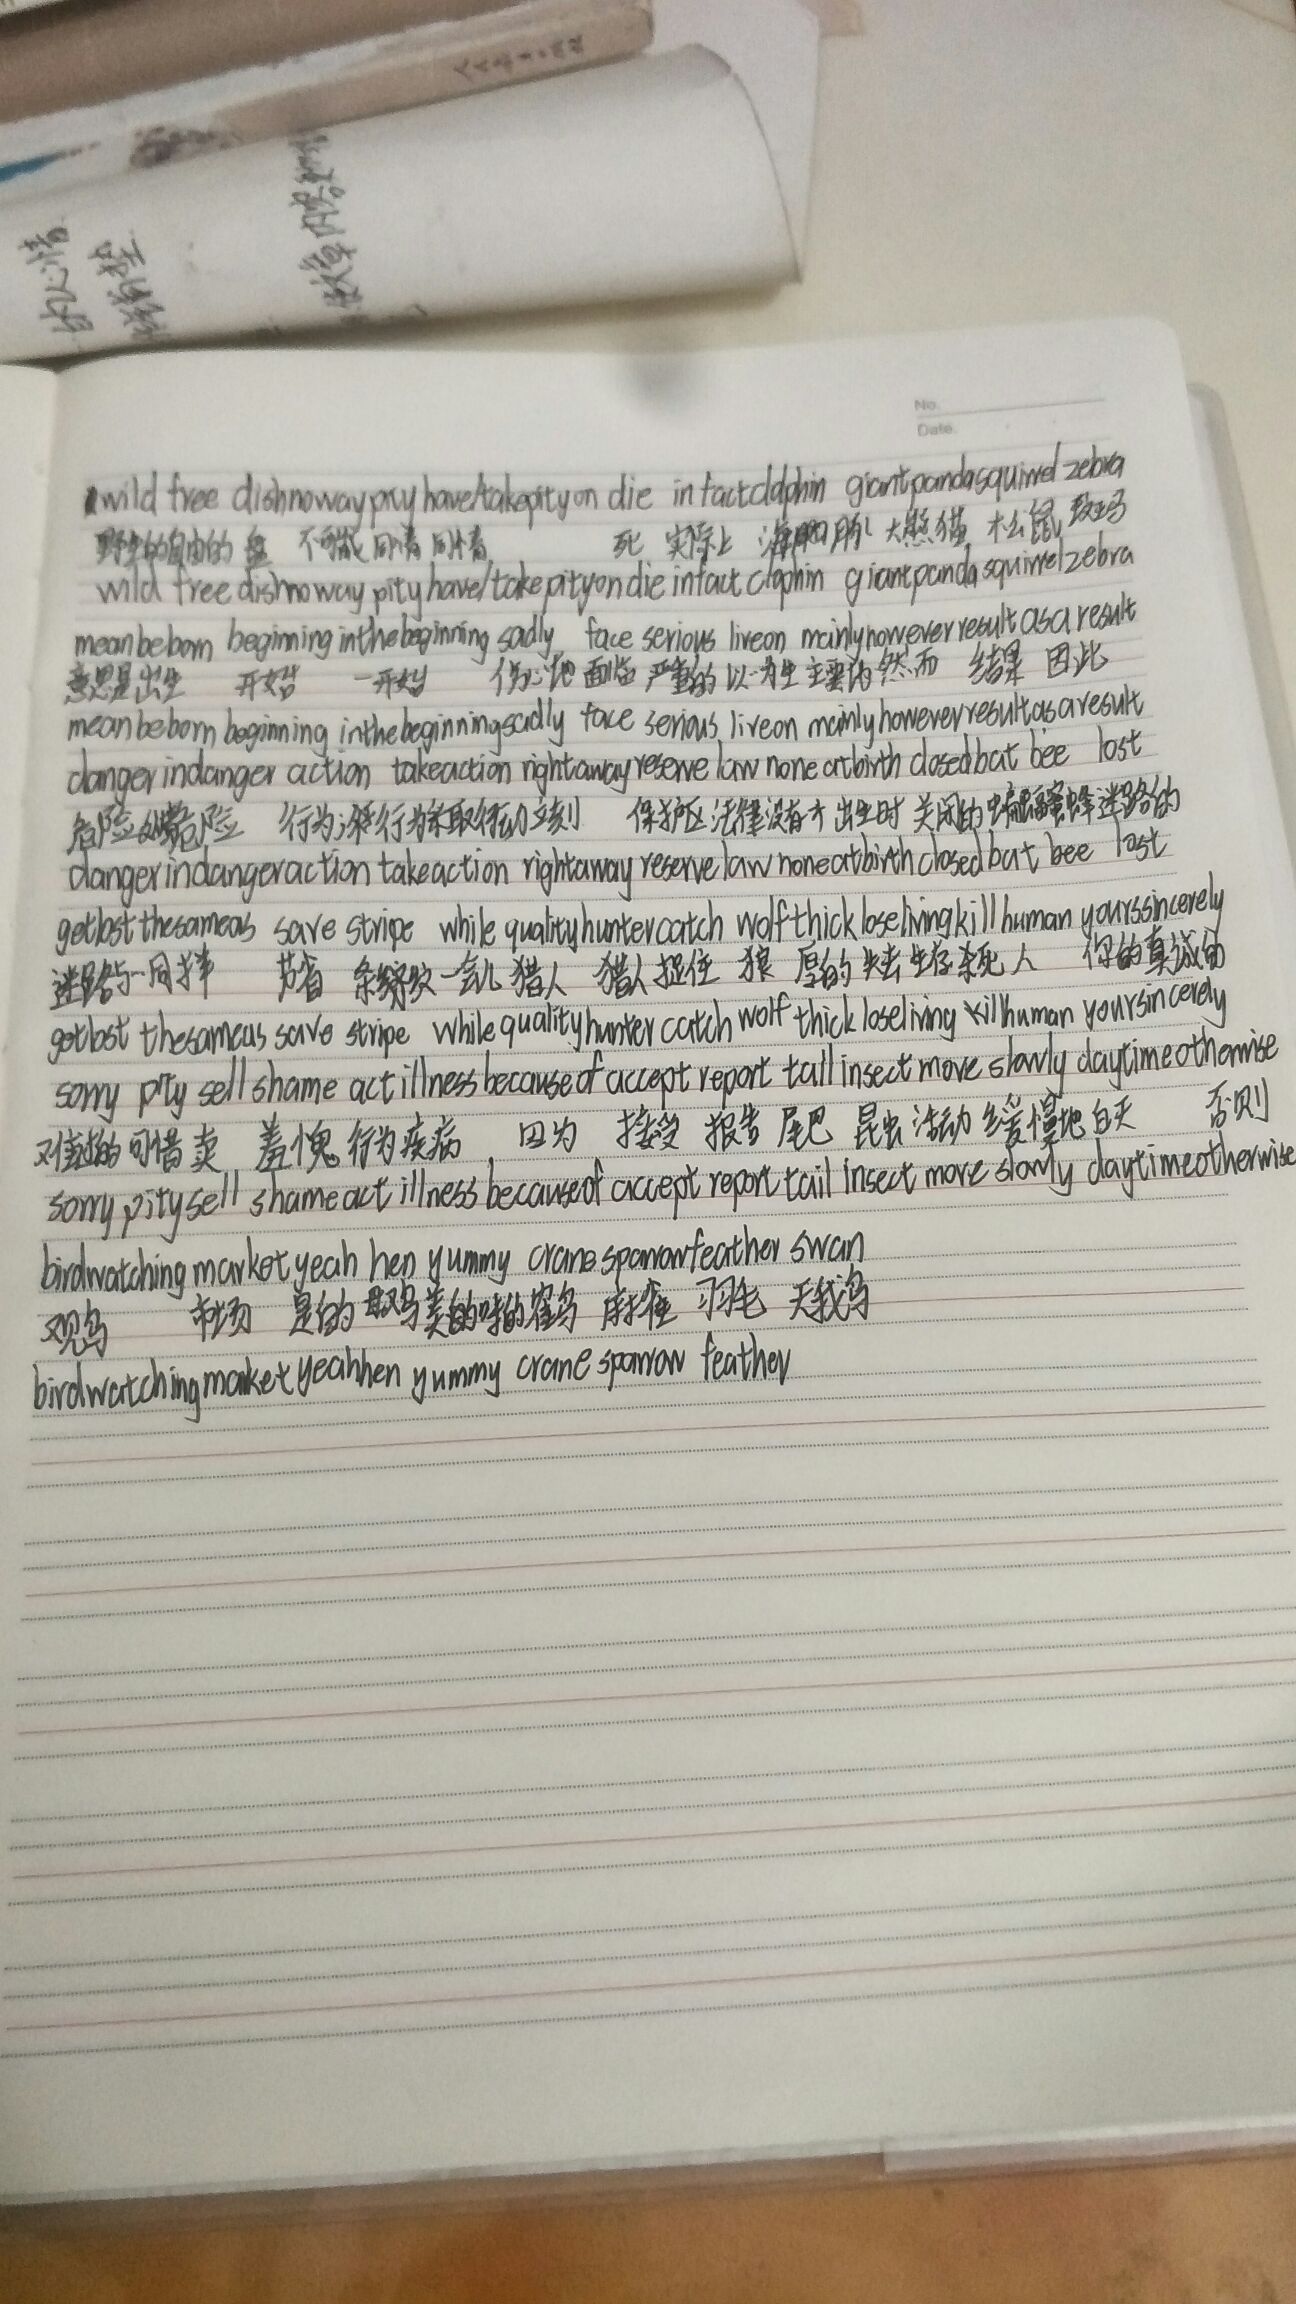 的心情
人民教育出版社
No.
Date.
wild free dish no way pity have/take pity on die in fact dolphin giant panda squirrel zebra
野生的 自由的 盘 不可能 同情 同情 死 实际上 海豚 大熊猫 松鼠 斑马
wild free dish no way pity have/take pity on die in fact dolphin giant panda squirrel zebra
mean be born beginning in the beginning sadly face serious live on mainly however result as a result
意思是 出生 开始 一开始 伤心地 面临 严重的 以…为生 主要的 然而 结果 因此
mean be born beginning in the beginning sadly face serious live on mainly however result as a result
danger in danger action take action right away reserve law none at birth closed bat bee lost
危险 处境危险 行为 采取行动 立刻 保护区 法律 没有 出生时 关闭的 蝙蝠 蜜蜂 迷路的
danger in danger action take action right away reserve law none at birth closed bat bee lost
get lost the same as save stripe while quality hunter catch wolf thick lose living kill human yours sincerely
迷路 与…同样 节省 条纹 一会儿 猎人 猎人 捉住 狼 厚的 失去 生存 杀死 人 你的真诚的
get lost the same as save stripe while quality hunter catch wolf thick lose living kill human your sincerely
sorry pity sell shame act illness because of accept report tail insect move slowly daytime otherwise
对…难过的 可惜 卖 羞愧 行为 疾病 因为 接受 报告 尾巴 昆虫 活动 缓慢地 白天 否则
sorry pity sell shame act illness because of accept report tail insect move slowly daytime otherwise
birdwatching market yeah hen yummy crane sparrow feather swan
观鸟 市场 是的 母鸡 美味的 鹤鸟 麻雀 羽毛 天鹅
birdwatching market yeah hen yummy crane sparrow feather